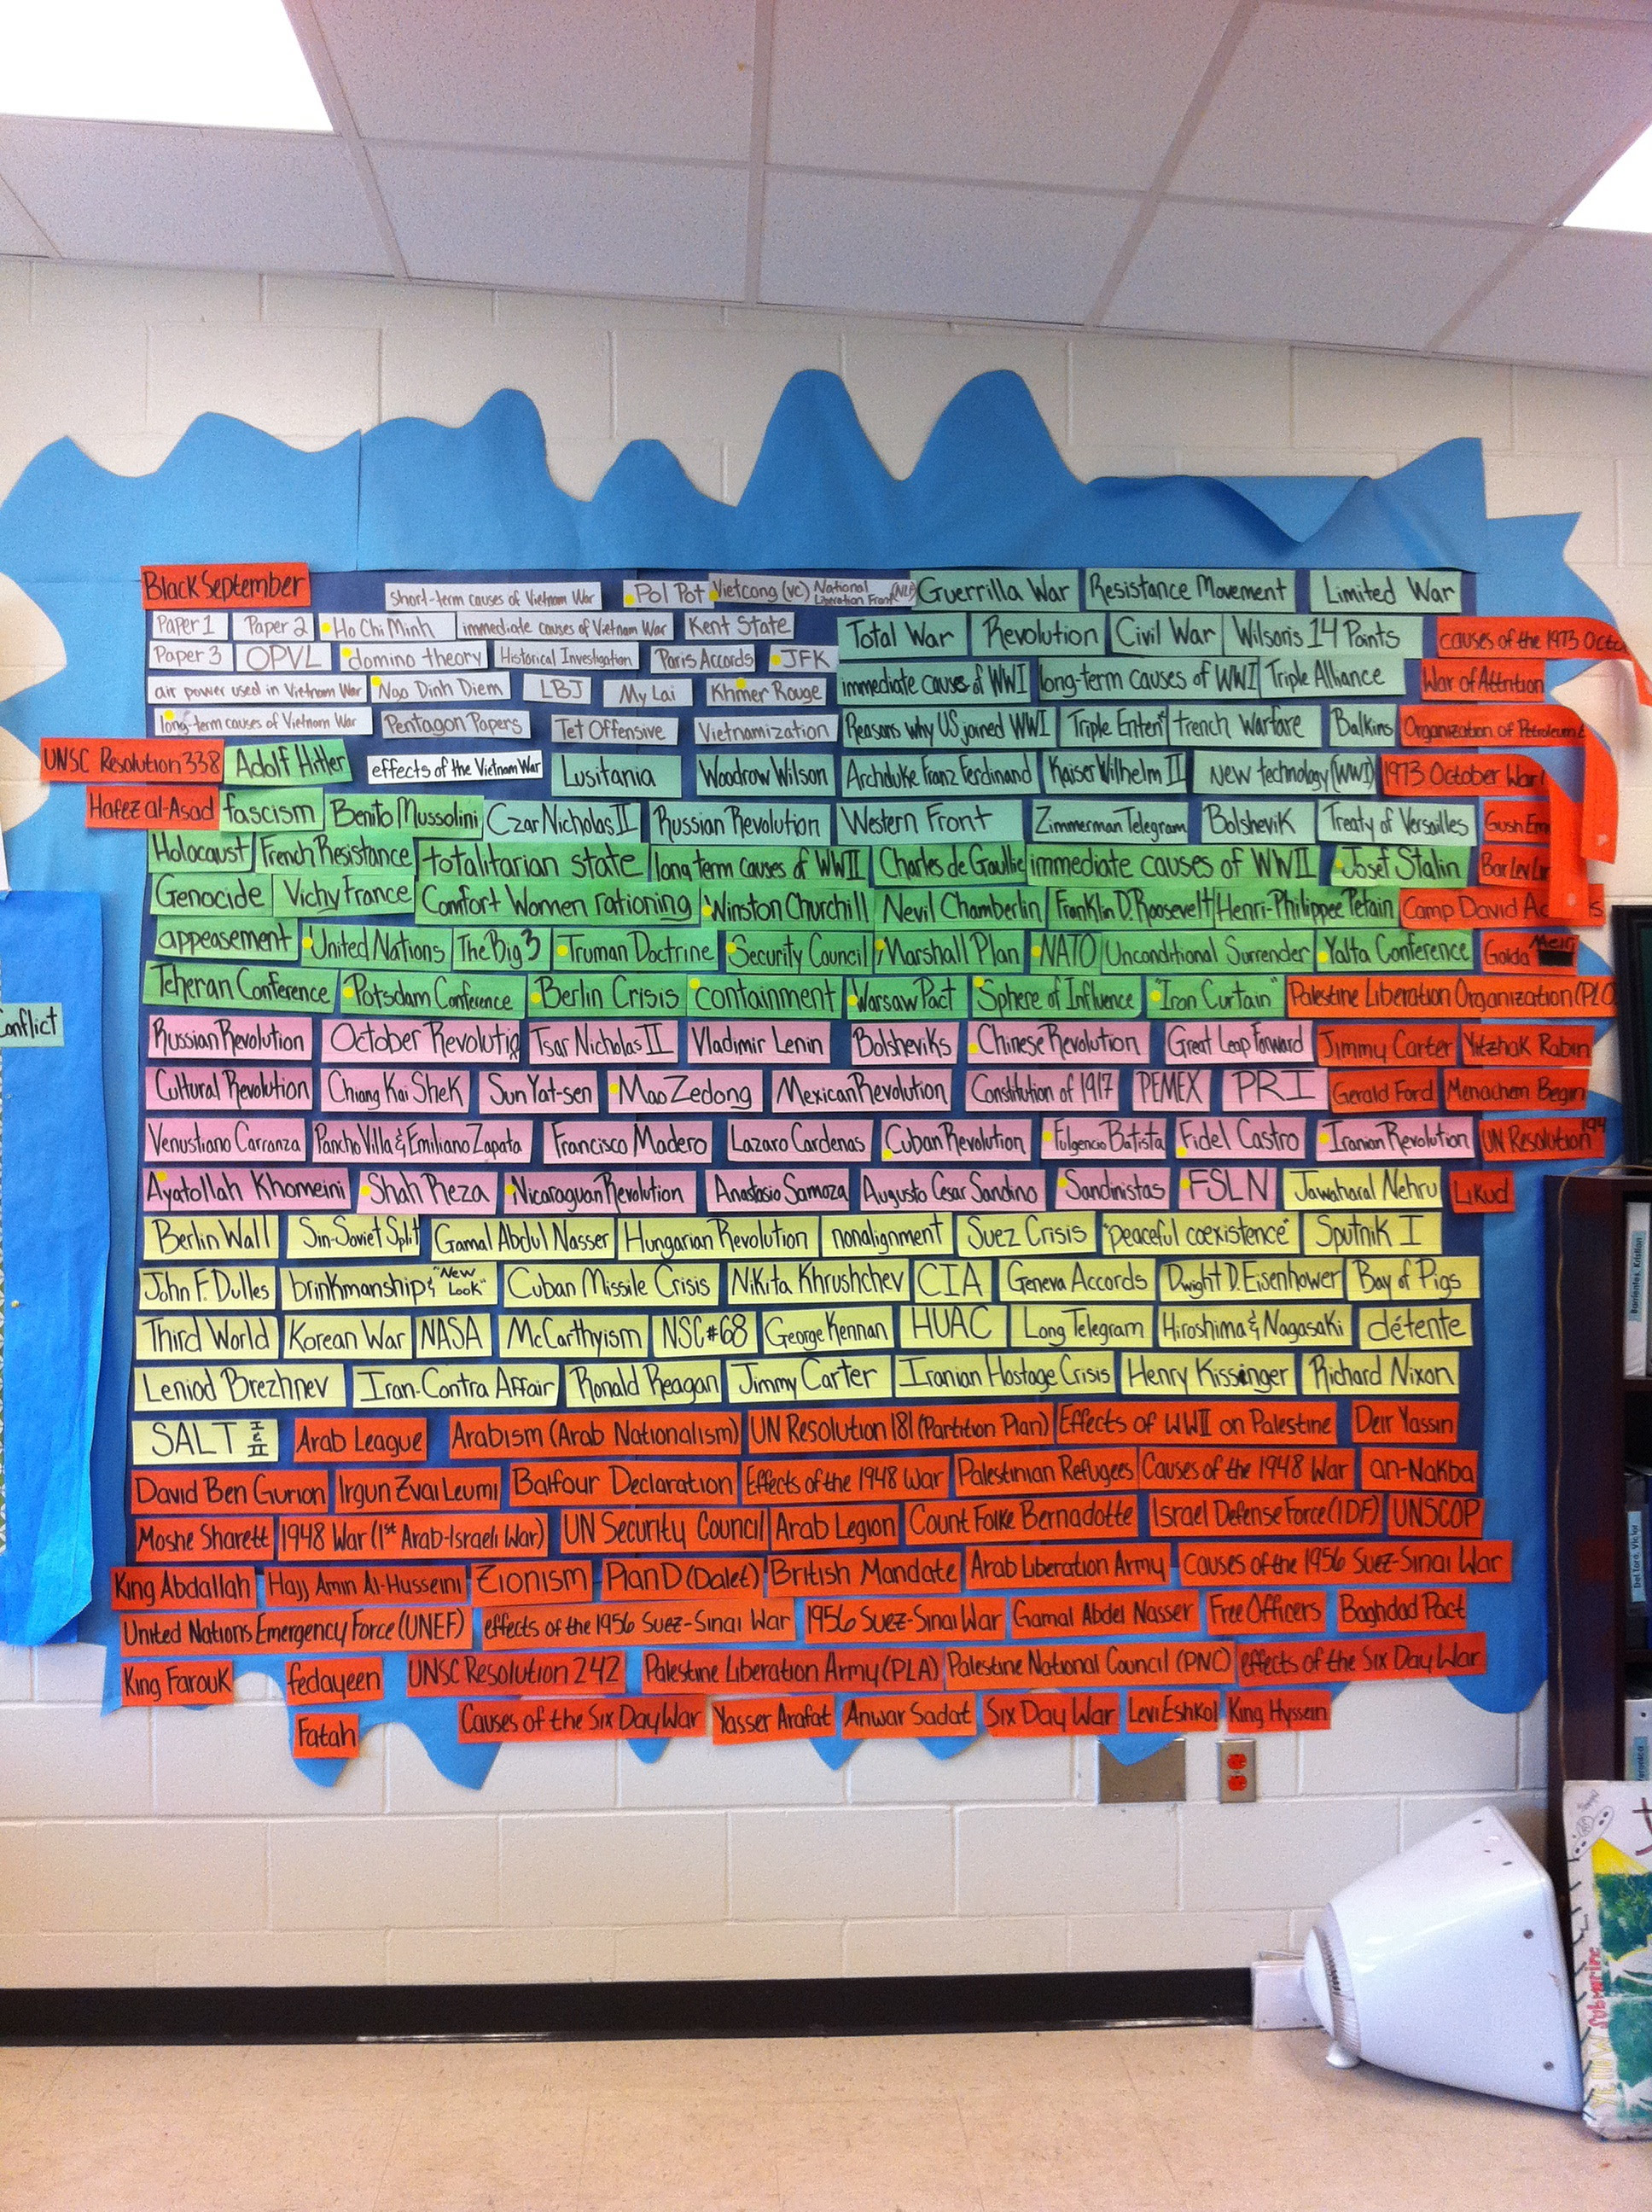 Black September short-term causes of Vietnam War Pol Pot Vietcong (VC) National Liberation Front (NLF) Guerrilla War Resistance Movement Limited War
Paper 1 Paper 2 Ho Chi Minh immediate causes of Vietnam War Kent State Total War Revolution Civil War Wilson's 14 Points causes of the 1973 Octo
Paper 3 OPVL domino theory Historical Investigation Paris Accords JFK
air power used in Vietnam War Ngo Dinh Diem LBJ My Lai Khmer Rouge immediate causes of WWI long-term causes of WWI Triple Alliance War of Attrition
long-term causes of Vietnam War Pentagon Papers Tet Offensive Vietnamization Reasons why US joined WWI Triple Entent trench warfare Balkins Organization of Petroleum E
UNSC Resolution 338 Adolf Hitler effects of the Vietnam War Lusitania Woodrow Wilson Archduke Franz Ferdinand Kaiser Wilhelm II New technology (WWI) 1973 October War
Hafez al-Asad fascism Benito Mussolini Czar Nicholas II Russian Revolution Western Front Zimmerman Telegram Bolshevik Treaty of Versailles Gush Em
Holocaust French Resistance totalitarian state long term causes of WWII Charles de Gaulle immediate causes of WWII Josef Stalin Bar Lev Lin
Genocide Vichy France Comfort Women rationing Winston Churchill Nevil Chamberlin Franklin D. Roosevelt Henri-Philippe Petain Camp David Ac s
appeasement United Nations The Big 3 Truman Doctrine Security Council Marshall Plan NATO Unconditional Surrender Yalta Conference Golda Meir
Teheran Conference Potsdam Conference Berlin Crisis containment Warsaw Pact Sphere of Influence "Iron Curtain" Palestine Liberation Organization (PLO
Conflict
Russian Revolution October Revolutio Tsar Nicholas II Vladimir Lenin Bolsheviks Chinese Revolution Great Leap Forward Jimmy Carter Yitzhak Rabin
Cultural Revolution Chiang Kai Shek Sun Yat-sen Mao Zedong Mexican Revolution Constitution of 1917 PEMEX PRI Gerald Ford Menachem Begin
Venustiano Carranza Pancho Villa & Emiliano Zapata Francisco Madero Lazaro Cardenas Cuban Revolution Fulgencio Batista Fidel Castro Iranian Revolution UN Resolution 194
Ayatollah Khomeini Shah Reza Nicaraguan Revolution Anastasio Samoza Augusto Cesar Sandino Sandinistas FSLN Jawaharal Nehru Likud
Berlin Wall Sin-Soviet Split Gamal Abdul Nasser Hungarian Revolution nonalignment Suez Crisis "peaceful coexistence" Sputnik I
John F. Dulles brinkmanship & "New Look" Cuban Missile Crisis Nikita Khrushchev CIA Geneva Accords Dwight D. Eisenhower Bay of Pigs
Third World Korean War NASA McCarthyism NSC #68 George Kennan HUAC Long Telegram Hiroshima & Nagasaki détente
Leniod Brezhnev Iran-Contra Affair Ronald Reagan Jimmy Carter Iranian Hostage Crisis Henry Kissinger Richard Nixon
SALT I & II Arab League Arabism (Arab Nationalism) UN Resolution 181 (Partition Plan) Effects of WWII on Palestine Deir Yassin
David Ben Gurion Irgun Zvai Leumi Balfour Declaration Effects of the 1948 War Palestinian Refugees Causes of the 1948 War an-Nakba
Moshe Sharett 1948 War (1st Arab-Israeli War) UN Security Council Arab Legion Count Folke Bernadotte Israel Defense Force (IDF) UNSCOP
King Abdallah Hajj Amin Al-Husseini Zionism Plan D (Dalet) British Mandate Arab Liberation Army Causes of the 1956 Suez-Sinai War
United Nations Emergency Force (UNEF) effects of the 1956 Suez-Sinai War 1956 Suez-Sinai War Gamal Abdel Nasser Free Officers Baghdad Pact
King Farouk fedayeen UNSC Resolution 242 Palestine Liberation Army (PLA) Palestine National Council (PNC) effects of the Six Day War
Fatah Causes of the Six Day War Yasser Arafat Anwar Sadat Six Day War Levi Eshkol King Hyssein
Barrientes, Kristian
Del Toro, Victor
YELLOW submarine